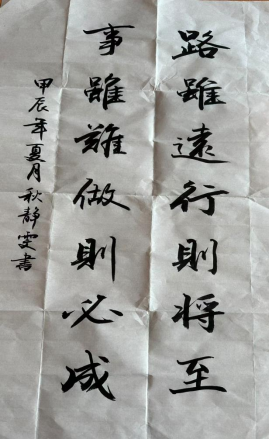 路雖遠行則將至
事雖難做則必成
甲辰年夏月秋靜雯書